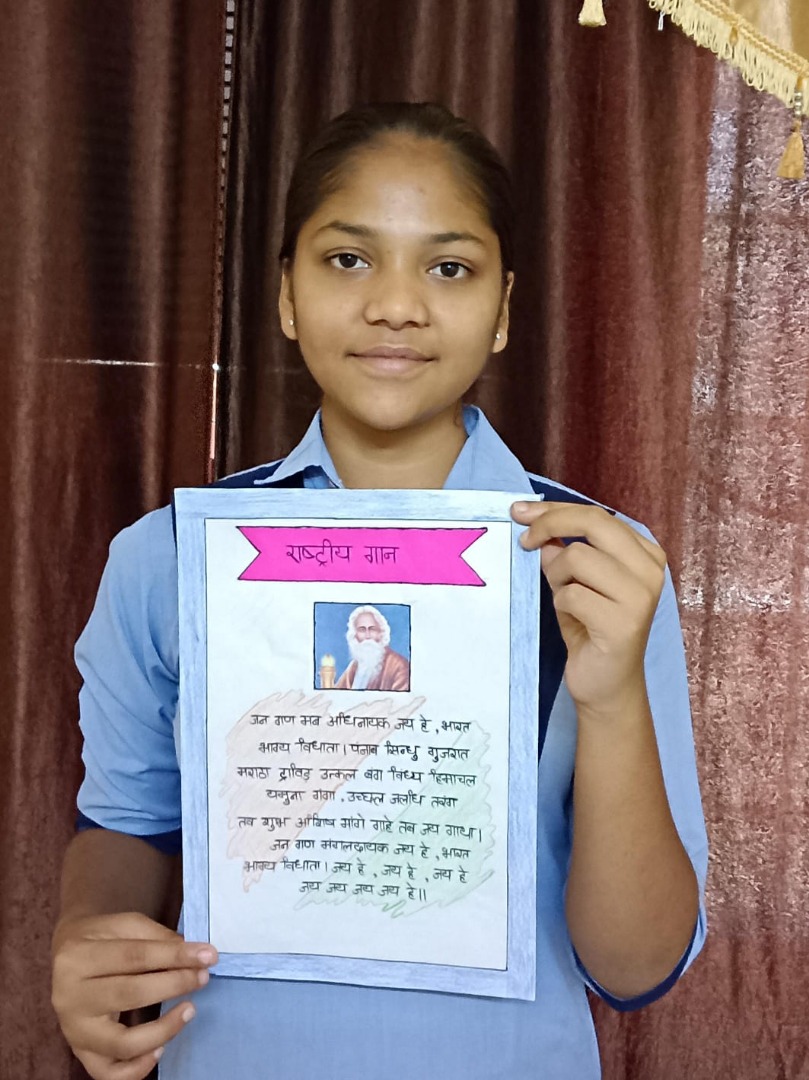 राष्ट्रीय गान
जन गण मन अधिनायक जय हे , भारत
भाग्य विधाता । पंजाब सिन्धु गुजरात
मराठा द्राविड़ उत्कल बंग विंध्य हिमाचल
यमुना गंगा , उच्छल जलधि तरंग
तव शुभ आशिष मांगे गाहे तब जय गाथा ।
जन गण मंगलदायक जय हे , भारत
भाग्य विधाता । जय हे , जय हे , जय हे
जय जय जय जय हे ॥